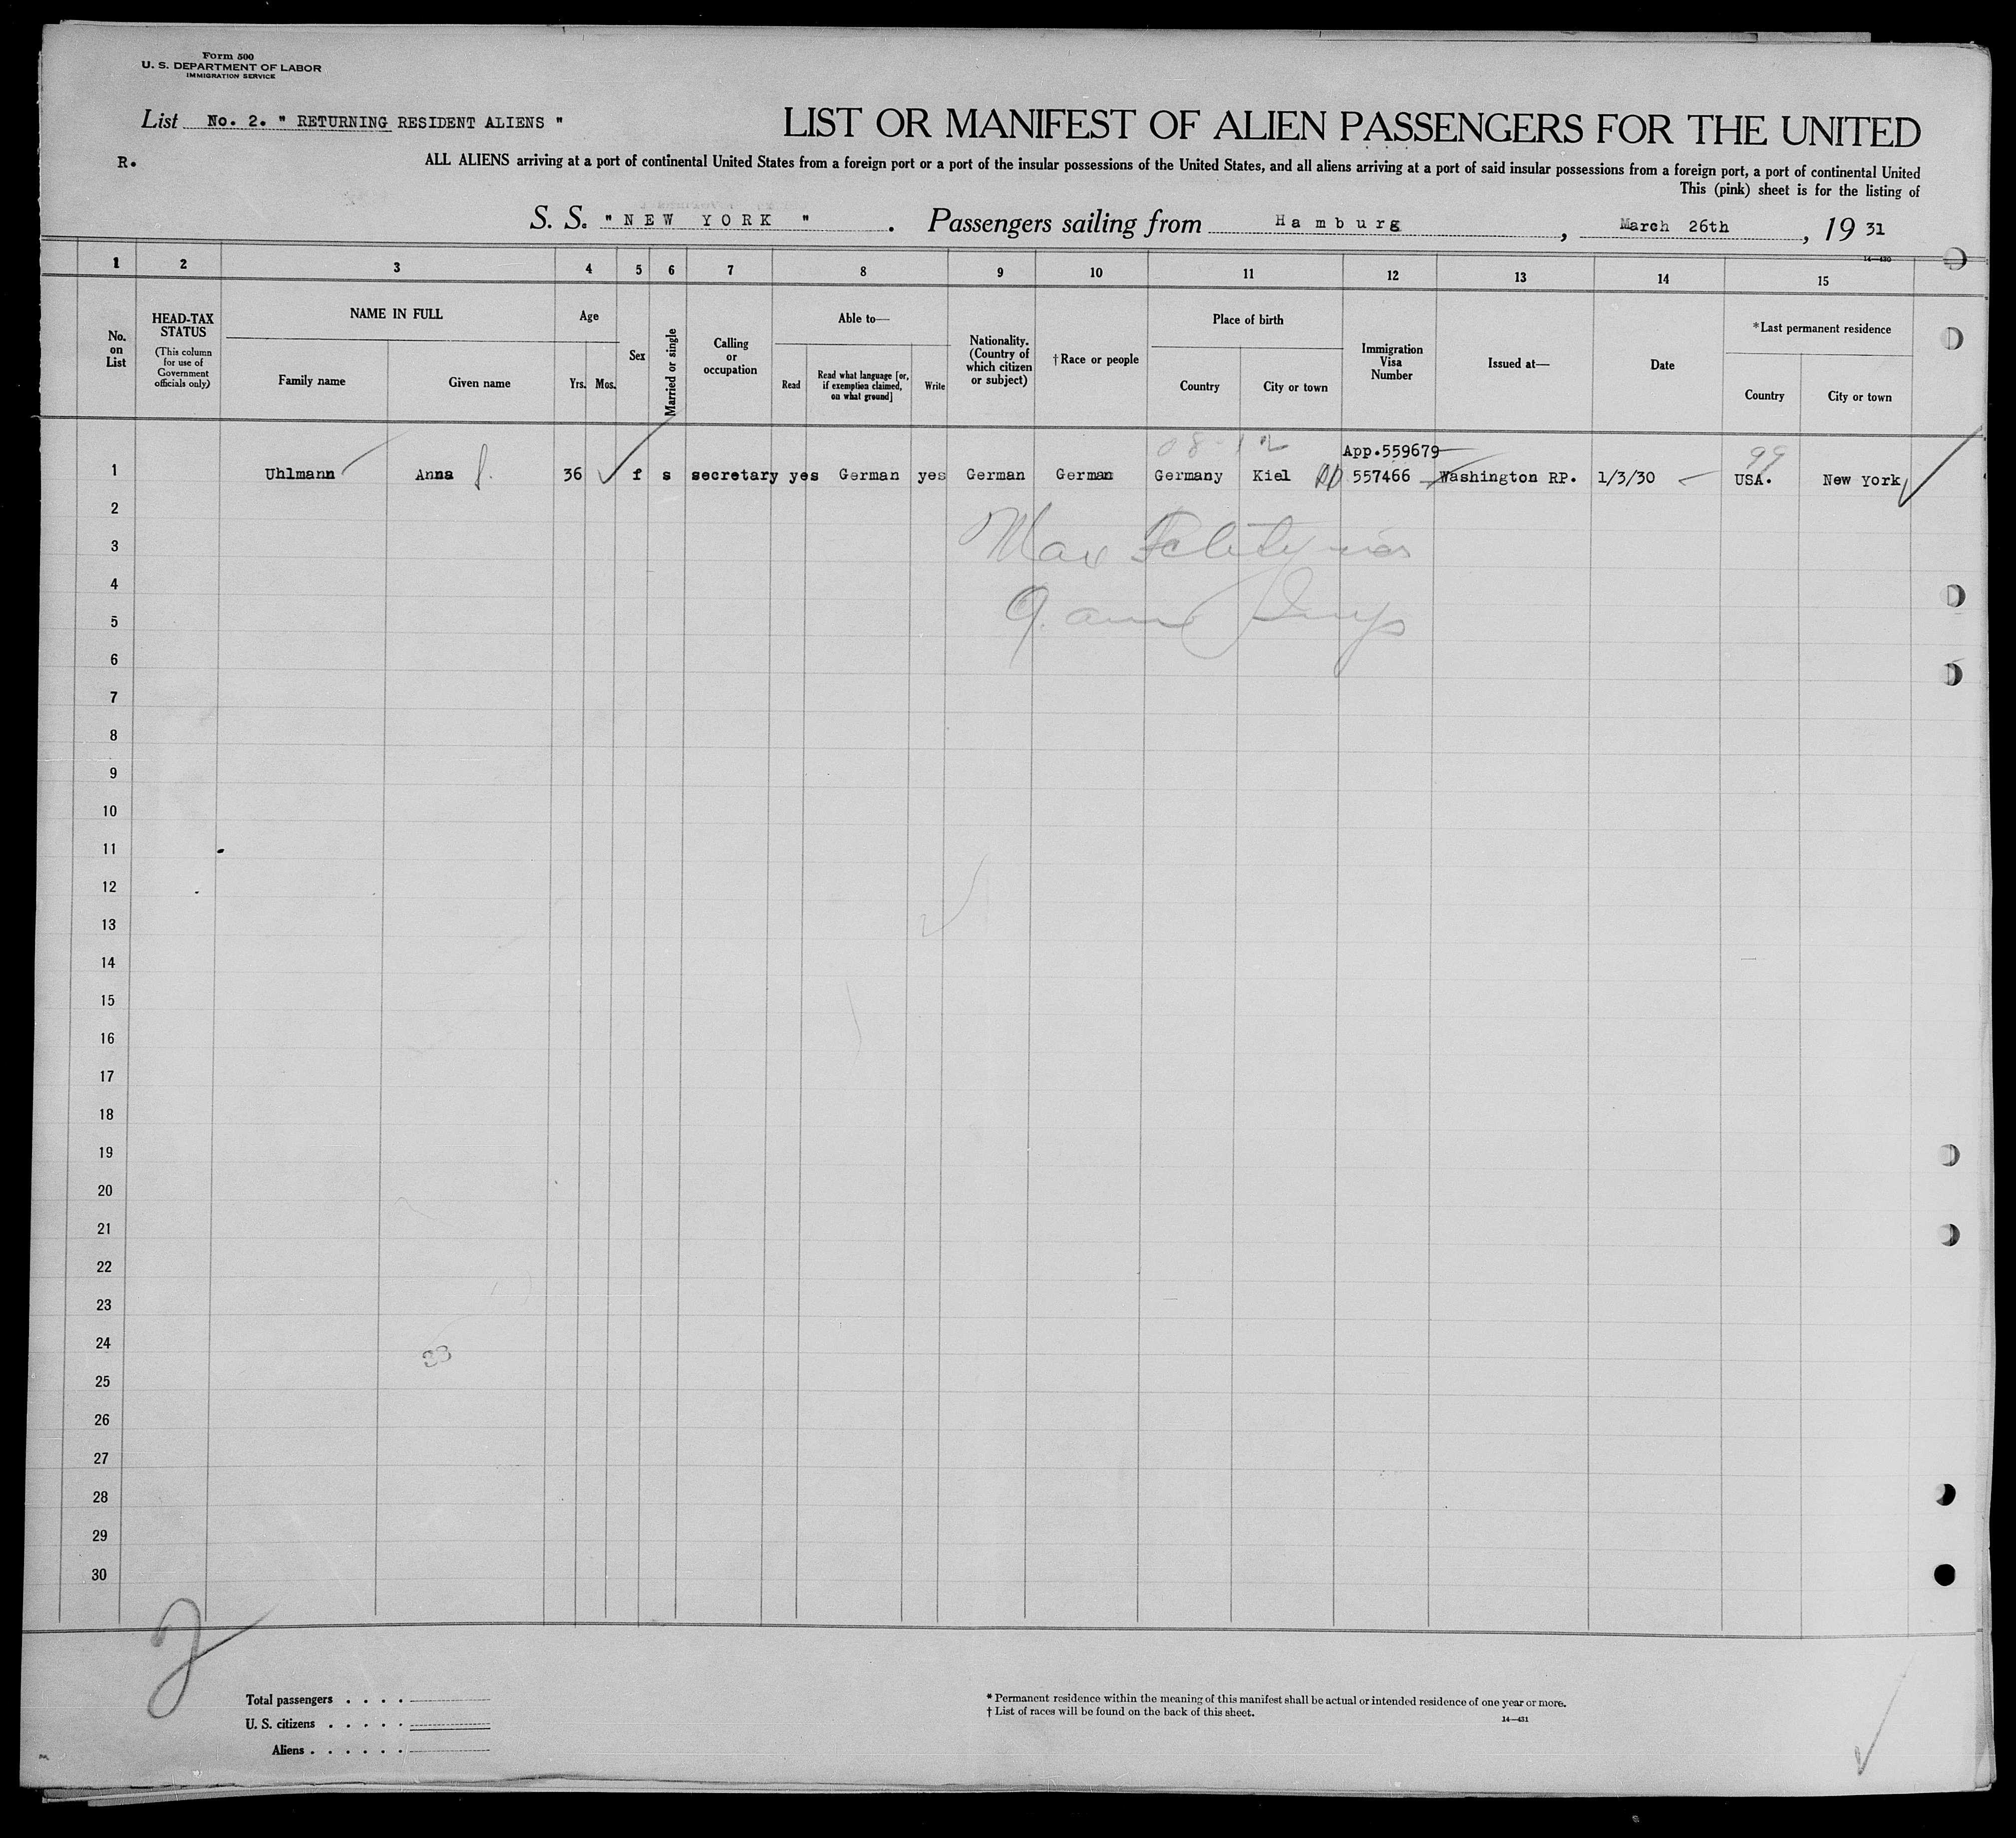 Form 500
U. S. DEPARTMENT OF LABOR
IMMIGRATION SERVICE
List No. 2. " RETURNING RESIDENT ALIENS "
R.
LIST OR MANIFEST OF ALIEN PASSENGERS FOR THE UNITED
ALL ALIENS arriving at a port of continental United States from a foreign port or a port of the insular possessions of the United States, and all aliens arriving at a port of said insular possessions from a foreign port, a port of continental United
This (pink) sheet is for the listing of
S. S. " NEW YORK " . Passengers sailing from Hamburg , March 26th , 19 31
14—430
1 2 3 4 5 6 7 8 9 10 11 12 13 14 15
No. on List
HEAD-TAX STATUS
(This column for use of Government officials only)
NAME IN FULL
Family name
Given name
Age
Yrs. Mos.
Sex
Married or single
Calling or occupation
Able to—
Read
Read what language [or, if exemption claimed, on what ground]
Write
Nationality. (Country of which citizen or subject)
†Race or people
Place of birth
Country
City or town
Immigration Visa Number
Issued at—
Date
*Last permanent residence
Country
City or town
App.559679
99
1 Uhlmann Anna 36 f s secretary yes German yes German German Germany Kiel 557466 Washington RP. 1/3/30 USA. New York
2
3
4
5
6
7
8
9
10
11
12
13
14
15
16
17
18
19
20
21
22
23
24
33
25
26
27
28
29
30
2
Total passengers . . . .
U. S. citizens . . . . .
Aliens . . . . . .
* Permanent residence within the meaning of this manifest shall be actual or intended residence of one year or more.
† List of races will be found on the back of this sheet.
14—431